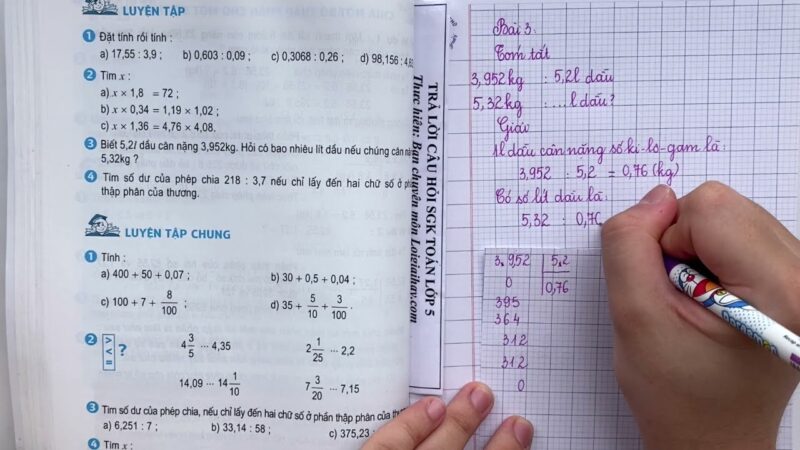 LUYỆN TẬP
1 Đặt tính rồi tính :
a) 17,55 : 3,9 ; b) 0,603 : 0,09 ; c) 0,3068 : 0,26 ; d) 98,156 : 4,63
2 Tìm x :
a) x × 1,8 = 72 ;
b) x × 0,34 = 1,19 × 1,02 ;
c) x × 1,36 = 4,76 × 4,08.
3 Biết 5,2l dầu cân nặng 3,952kg. Hỏi có bao nhiêu lít dầu nếu chúng cân
5,32kg ?
4 Tìm số dư của phép chia 218 : 3,7 nếu chỉ lấy đến hai chữ số ở
thập phân của thương.
LUYỆN TẬP CHUNG
1 Tính :
a) 400 + 50 + 0,07 ; b) 30 + 0,5 + 0,04 ;
c) 100 + 7 + 8/100 ; d) 35 + 5/10 + 3/100 .
2 > < = ? 4 3/5 ... 4,35 2 1/25 ... 2,2
14,09 ... 14 1/10 7 3/20 ... 7,15
3 Tìm số dư của phép chia, nếu chỉ lấy đến hai chữ số ở phần thập phân của
a) 6,251 : 7 ; b) 33,14 : 58 ; c) 375,23
4 Tìm x :
TRẢ LỜI CÂU HỎI SGK TOÁN LỚP 5
Thực hiện: Ban chuyên môn Loigiaihay.com
Bài 3:
Tóm tắt
3,952kg : 5,2l dầu
5,32kg : ...l dầu?
Giải
1l dầu cân nặng số ki-lô-gam là:
3,952 : 5,2 = 0,76 (kg)
Có số lít dầu là:
5,32 : 0,76
3,9,52 5,2
0 0,76
395
364
312
312
0